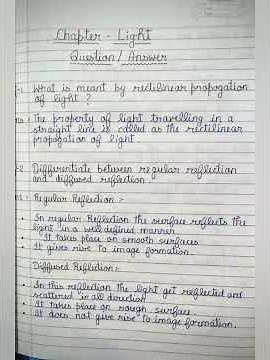 Chapter - Light
Question / Answer
What is meant by rectilinear propogation
of light ?
The property of light travelling in a
straight line is called as the rectilinear
propogation of light
Differentiate between regular reflection
and diffused reflection.
Regular Reflection :-
• In regular Reflection the surface reflects the
light in a well defined manner.
• It takes place on smooth surfaces
• It gives rise to image formation.
Diffused Reflection :-
• In this reflection the light get reflected and
scattered in all direction
• It takes place on rough surface.
• It does not give rise to image formation.